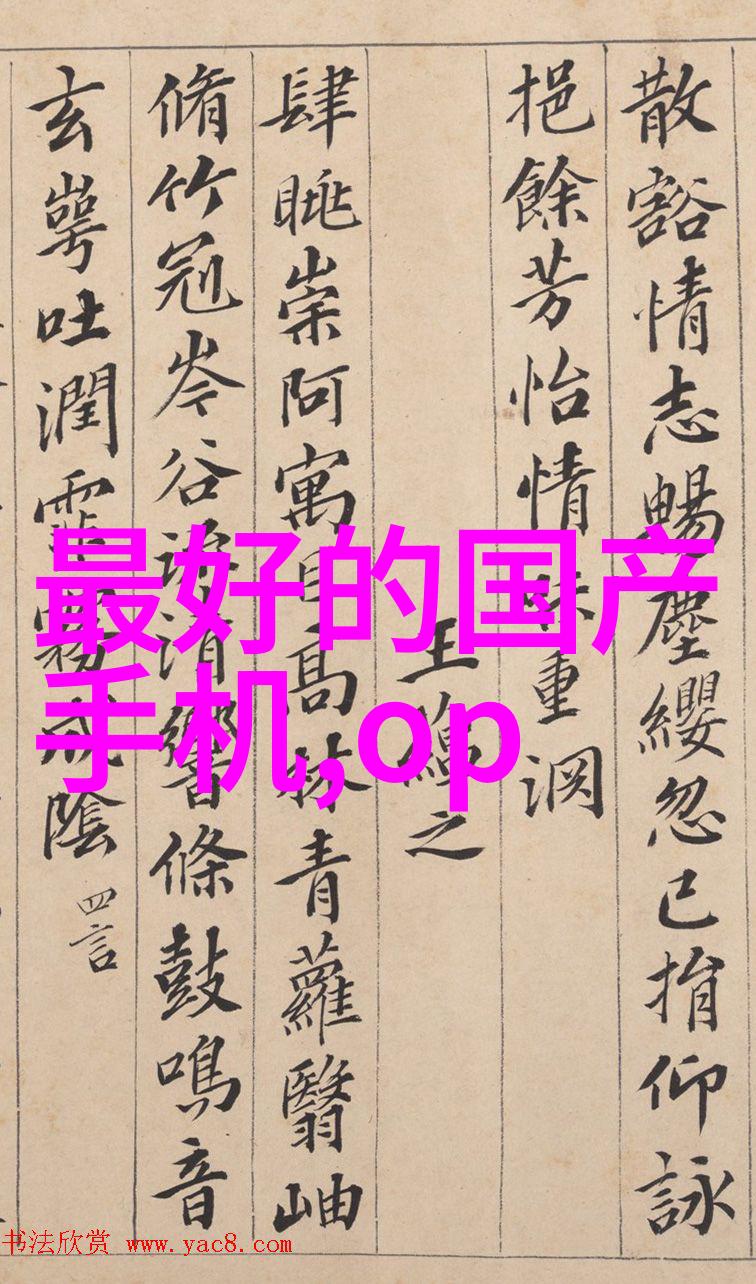 散豁情志暢塵纓忽已捐仰詠
挹餘芳怡情味重淵
王縕之
肆眺崇阿寓目高林青蘿翳岫
脩竹冠岑谷流清響條鼓鳴音
玄崿吐潤霏霧成陰 四言
最好的国产
手机,op
书法欣赏 www.yac8.com